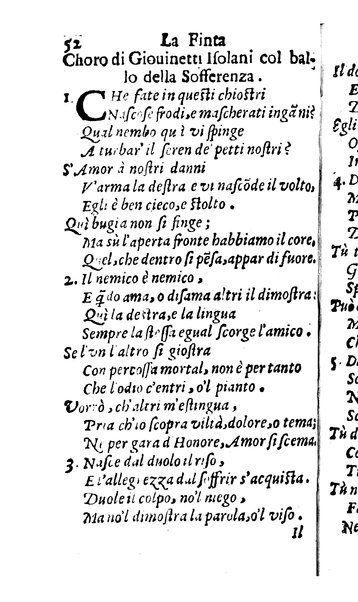 52 La Finta
Choro di Giouinetti Isolani col bal-
lo della Sofferenza.
1. CHe fate in questi chiostri
Nascose frodi, e mascherati ingãni?
Qual nembo quì vi spinge
A turbar'il seren de' petti nostri?
S'Amor à nostri danni
V'arma la destra e vi nascõde il volto,
Egli è ben cieco, e stolto.
Quì bugia non si finge;
Ma sù l'aperta fronte habbiamo il core,
Quel, che dentro si pẽsa, appar di fuore.
2. Il nemico è nemico,
E q̃do ama, o disama altri il dimostra:
Quì la destra, e la lingua
Sempre la stessa egual scorge l'amico.
Se l'vn l'altro si giostra
Con percossa mortal, non è per tanto
Che l'odio c'entri, o'l pianto.
Vorrò, ch'altri m'estingua,
Pria ch'io scopra viltà, dolore, o tema;
Nè per gara d Honore, Amor si scema.
3. Nasce dal duolo il riso,
E l'allegrezza dal soffrir s'acquista.
Duole il colpo, no'l niego,
Ma no'l dimostra la parola, o'l viso.
Il
Il d
E
Egli
O
A
4. D
Tù
Tù d
5. D
S
C
Tù d
F